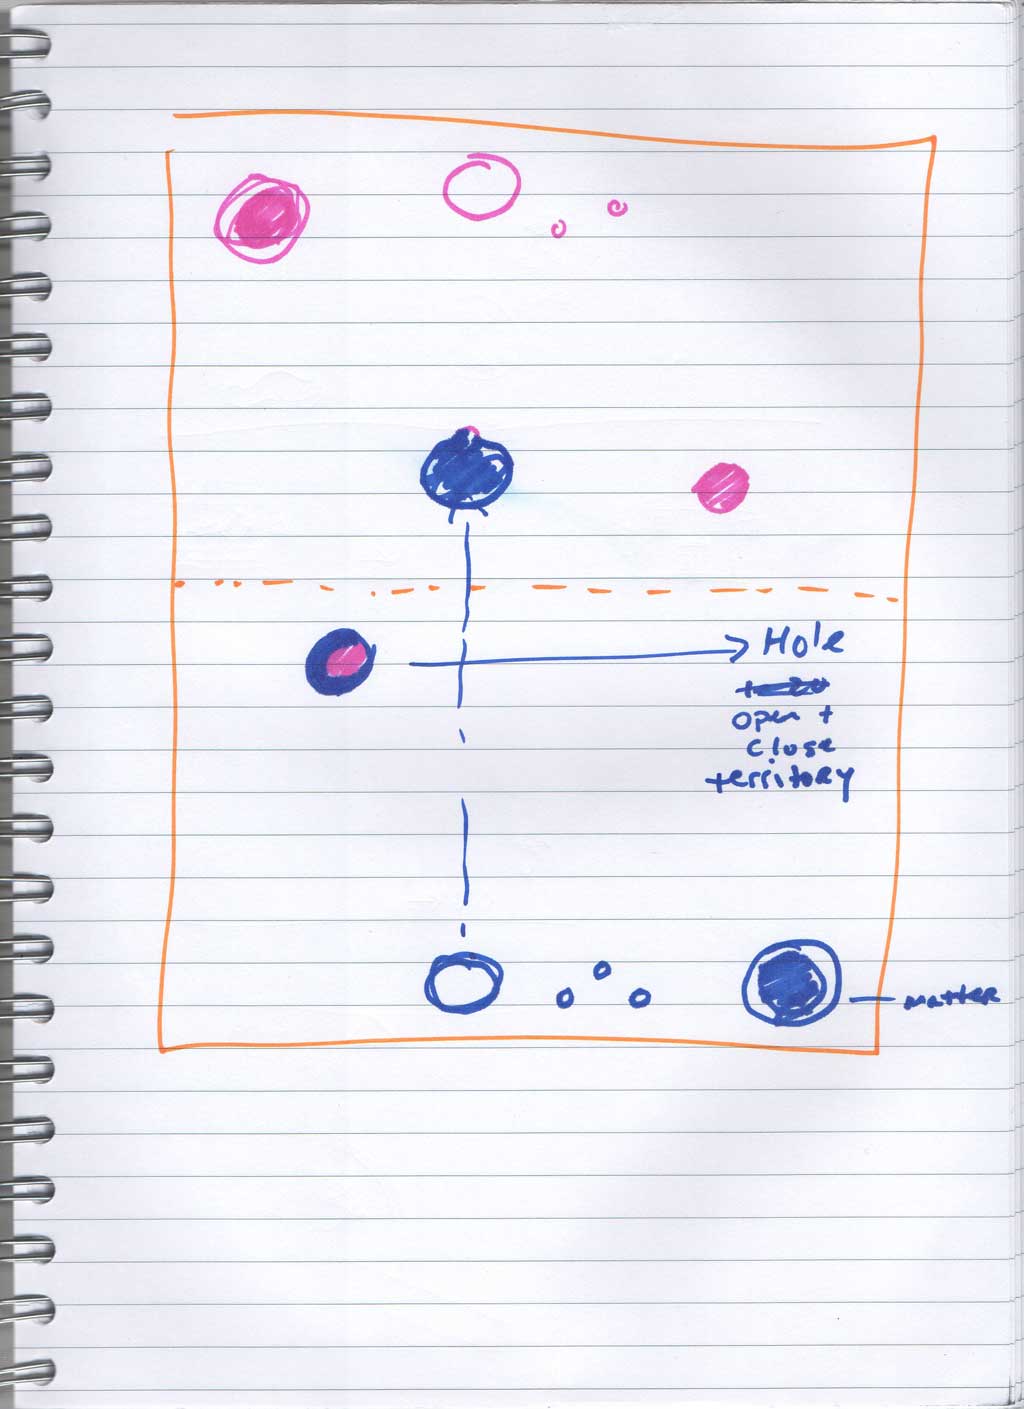 Hole
open +
close
territory
matter